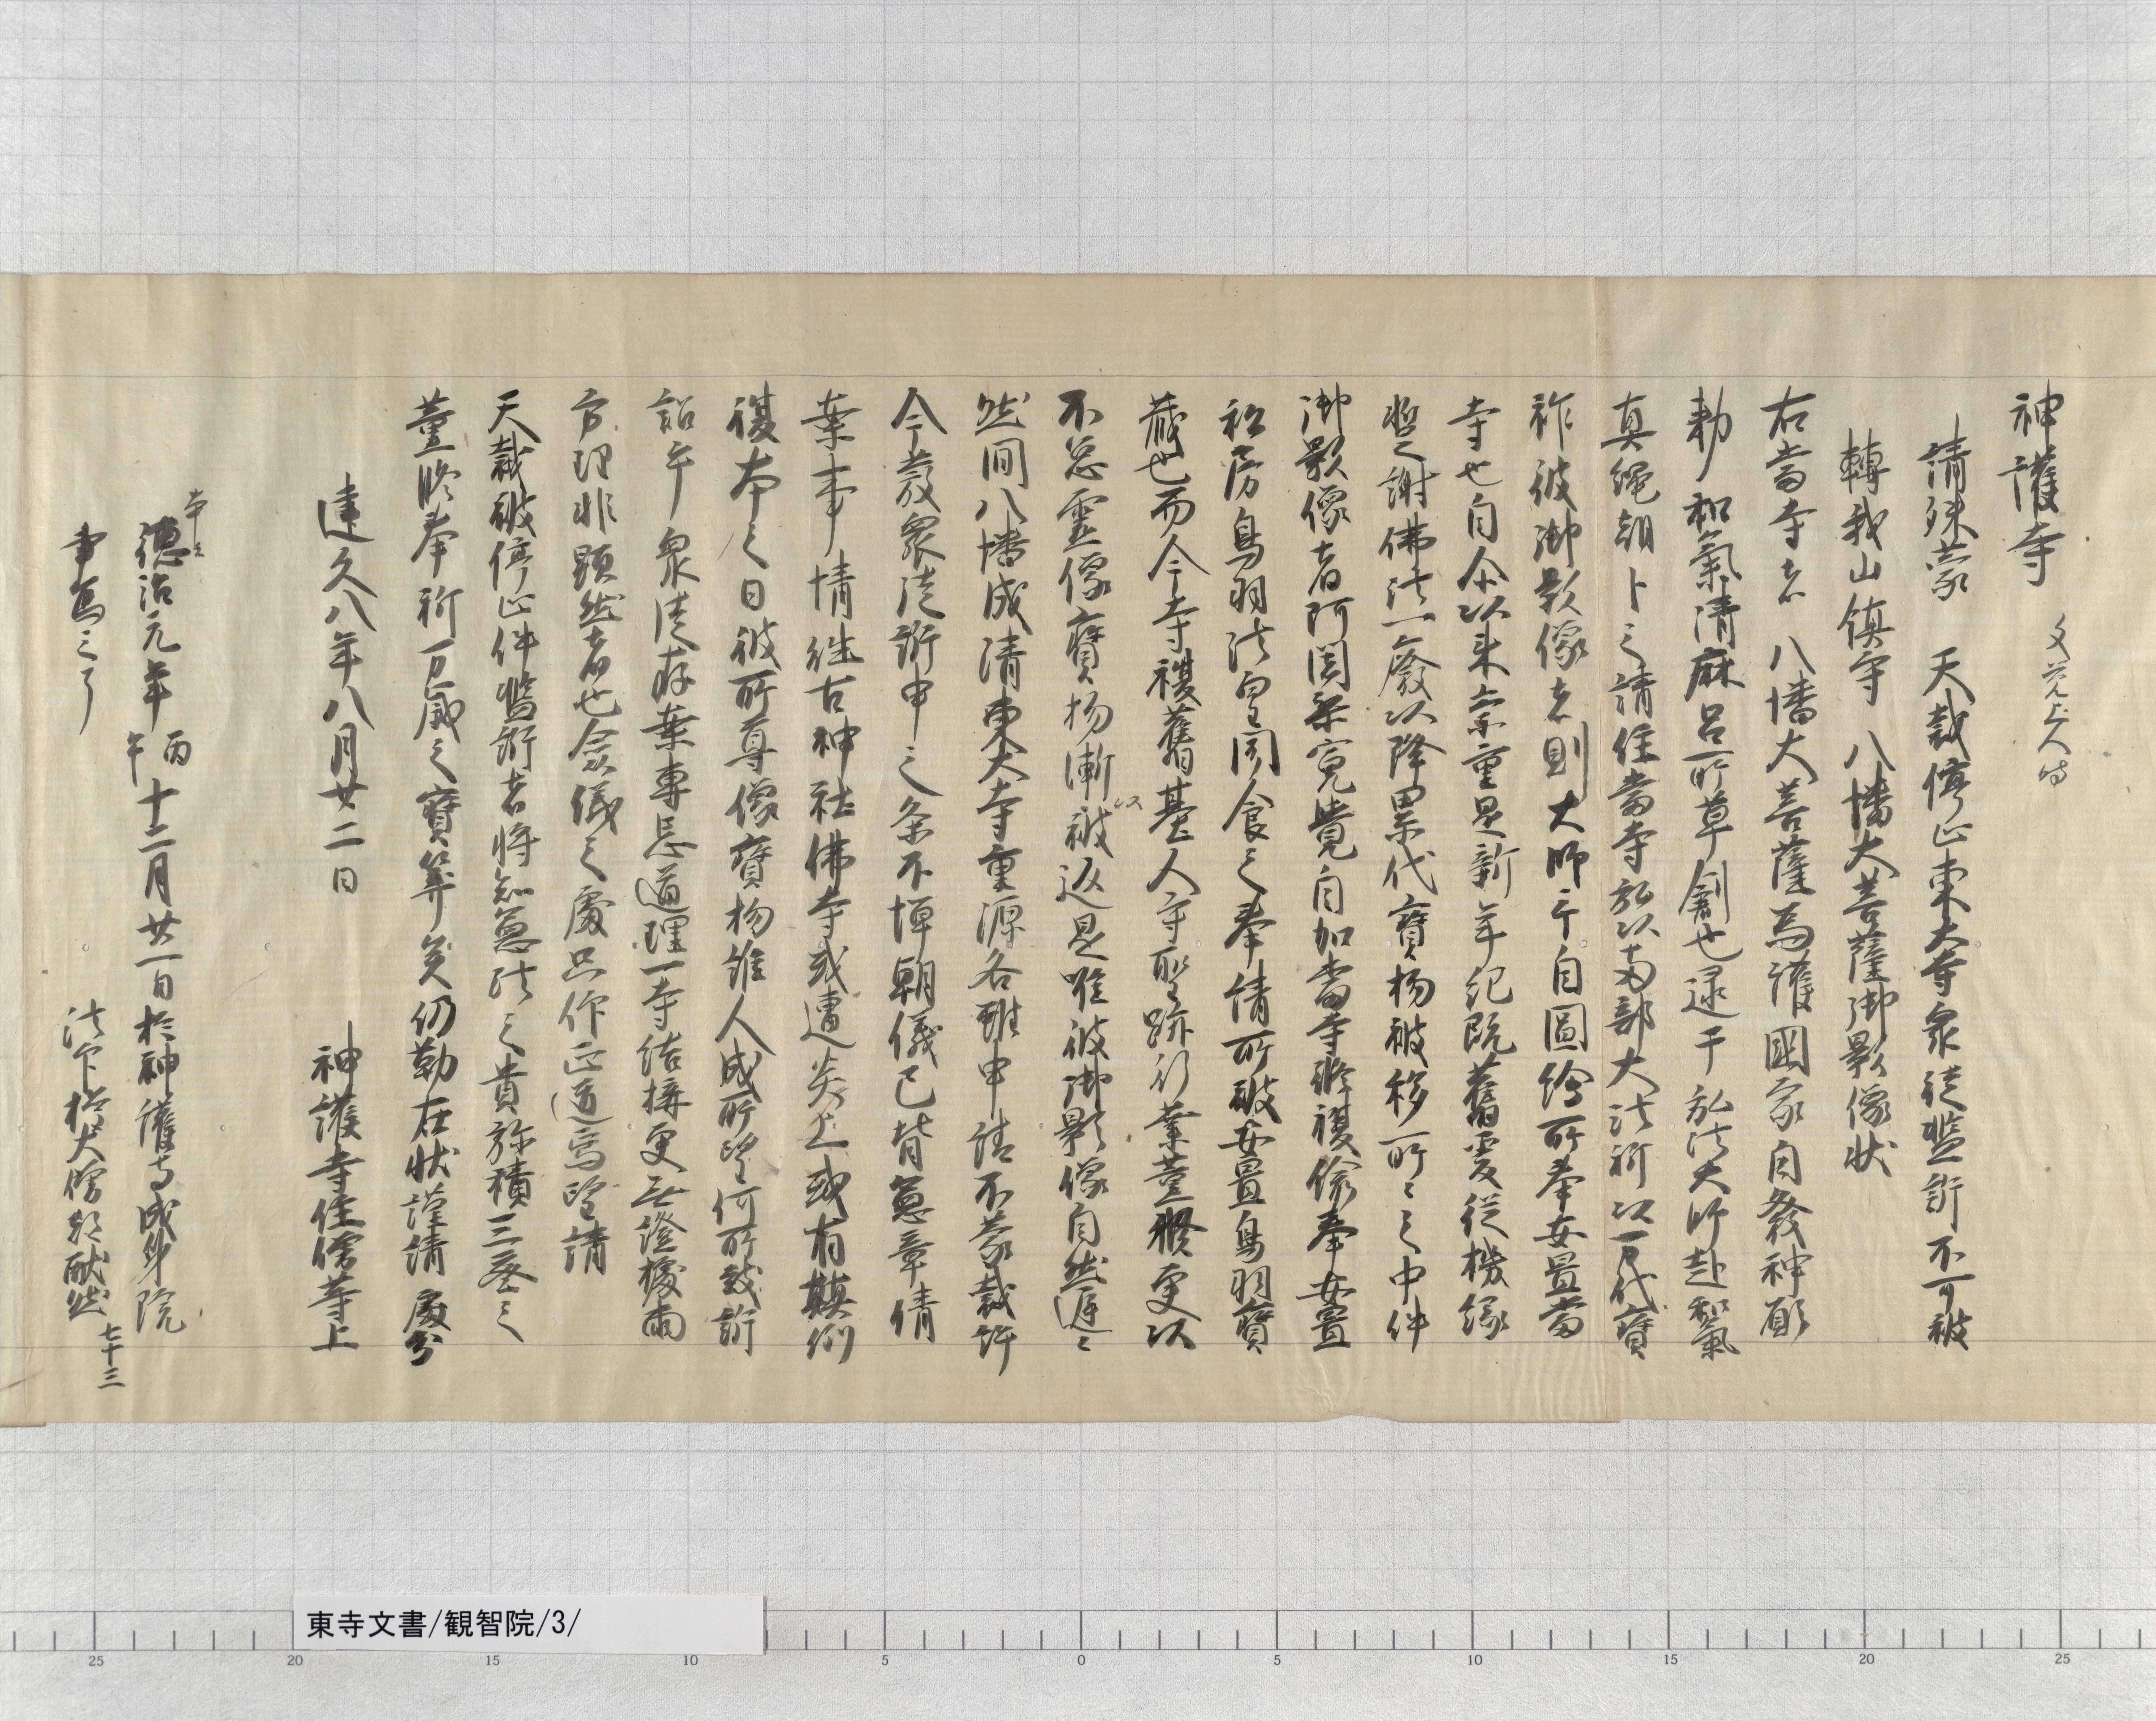 神護寺　文覚上人時
請殊蒙　天裁停止東大寺衆徒濫訴不可被
轉我山鎮守　八幡大菩薩御影像状
右當寺者　八幡大菩薩為護國家自發神願
勅和氣清麻呂所草創也逮于弘法大師赴和氣
真縄朝卜之請住當寺弘以両部大法祈以万代寶
祚彼御影像者則大師手自圖繪所奉安置當
寺也自尒以来崇重是新年紀既舊爰従機縁
暫謝佛法一廢以降累代寶物被移所々之中件
御影像者阿闍梨寛覺自加當寺修複儀奉安置
松房鳥羽法皇聞食之奉請所被安置鳥羽寶
蔵也而今寺複舊基人守聖跡行業薫修更以
不怠靈像寶物漸以被返是唯彼御影像自然遅々
然間八幡成清東大寺重源各雖申請不蒙裁許
今發衆徒訴申之条不憚朝儀已背憲章倩
案事情往古神社佛寺或遭炎上或有頽例
複本之日彼所尊像寶物誰人成所望何所致訴
詔乎衆徒存案専忘道理一寺結構更無證據両
方理非顕然者也僉儀之處只作正道焉望請
天裁被停止件濫訴者将知憲法之貴弥積三密之
薫修奉祈万歳之寶筭矣仍勒在状謹請處分
建久八年八月廿二日　　神護寺住僧等上
本云
德治元年丙午十二月廿一日於神護寺成身院
書寫之了
法印権大僧都猷然七十三
東寺文書/観智院/3/
25 20 15 10 5 0 5 10 15 20 25